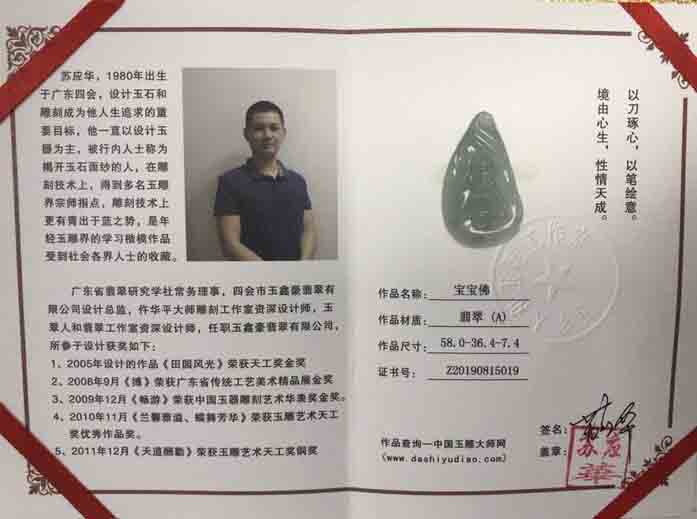 苏应华，1980年出生
于广东四会，设计玉石和
雕刻成为他人生追求的重
要目标，他一直以设计玉
器为主，被行内人士称为
揭开玉石面纱的人，在雕
刻技术上，得到多名玉雕
界宗师指点，雕刻技术上
更有青出于蓝之势，是年
轻玉雕界的学习楷模作品
受到社会各界人士的收藏。
广东省翡翠研究学社常务理事，四会市玉鑫豪翡翠有
限公司设计总监，仵华平大师雕刻工作室资深设计师，玉
翠人和翡翠工作室资深设计师，任职玉鑫豪翡翠有限公司，
所参于设计获奖如下：
1、2005年设计的作品《田园风光》荣获天工奖金奖
2、2008年9月《博》荣获广东省传统工艺美术精品展金奖
3、2009年12月《畅游》荣获中国玉器雕刻艺术华表奖金奖。
4、2010年11月《兰馨雅溢、蝶舞芳华》荣获玉雕艺术天工
奖优秀作品奖。
5、2011年12月《天道酬勤》荣获玉雕艺术天工奖铜奖
以刀琢心，以笔绘意。
境由心生，性情天成。
作品名称：宝宝佛
作品材质：翡翠（A）
作品尺寸：58.0-36.4-7.4
证书号：Z20190815019
作品查询一中国玉雕大师网
(www.dashiyudiao.com)
签名：
盖章：
苏应
华